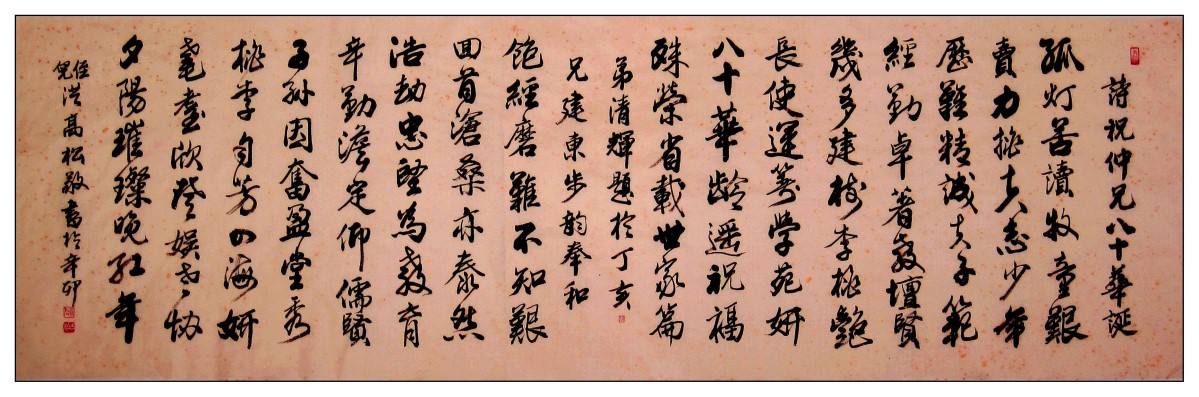 詩祝仲兄八十華誕
孤灯苦讀牧童艱
賣力志少年
歷難精誠夫子範
經勤卓著教壇賢
幾多建樹李桃艷
長使運籌學苑妍
八十華齡遥祝福
殊榮省載世家篇
弟清輝題於丁亥
兄建東步韵奉和
飽經磨難不知艱
回首滄桑亦泰然
浩劫忠堅為教育
辛勤澹定仰儒賢
子孫因奮盈堂秀
桃李自芳四海妍
耄耋欣登娛老協
夕陽璀璨晚紅年
侄倪洪高松敬書於辛卯